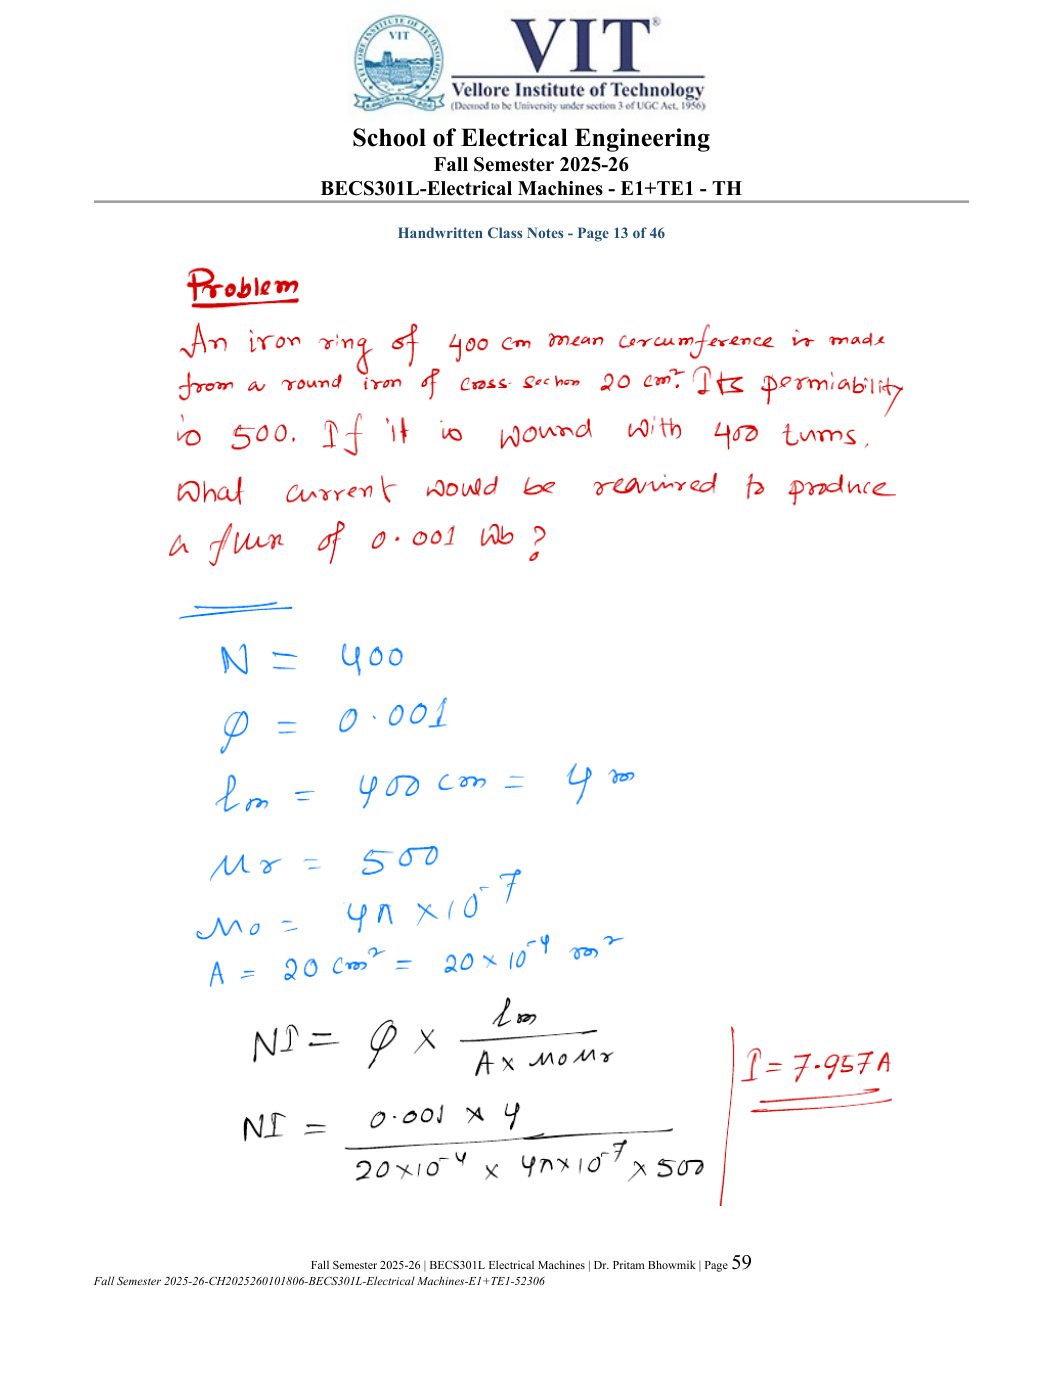 VIT
VIT®
Vellore Institute of Technology
(Deemed to be University under section 3 of UGC Act, 1956)
School of Electrical Engineering
Fall Semester 2025-26
BECS301L-Electrical Machines - E1+TE1 - TH
Handwritten Class Notes - Page 13 of 46
Problem
An iron ring of 400 cm mean cercumference is made
from a round iron of cross section 20 cm². Its permiability
is 500. If it is wound with 400 turns.
What current would be required to produce
a flux of 0.001 Wb?
N = 400
φ = 0.001
lm = 400 cm = 4 m
μr = 500
μ0 = 4π × 10⁻⁷
A = 20 cm² = 20 × 10⁻⁴ m²
NI = φ × lm / A × μ0 μr
I = 7.957 A
NI = 0.001 × 4 / 20×10⁻⁴ × 4π×10⁻⁷ × 500
Fall Semester 2025-26 | BECS301L Electrical Machines | Dr. Pritam Bhowmik | Page 59
Fall Semester 2025-26-CH2025260101806-BECS301L-Electrical Machines-E1+TE1-52306